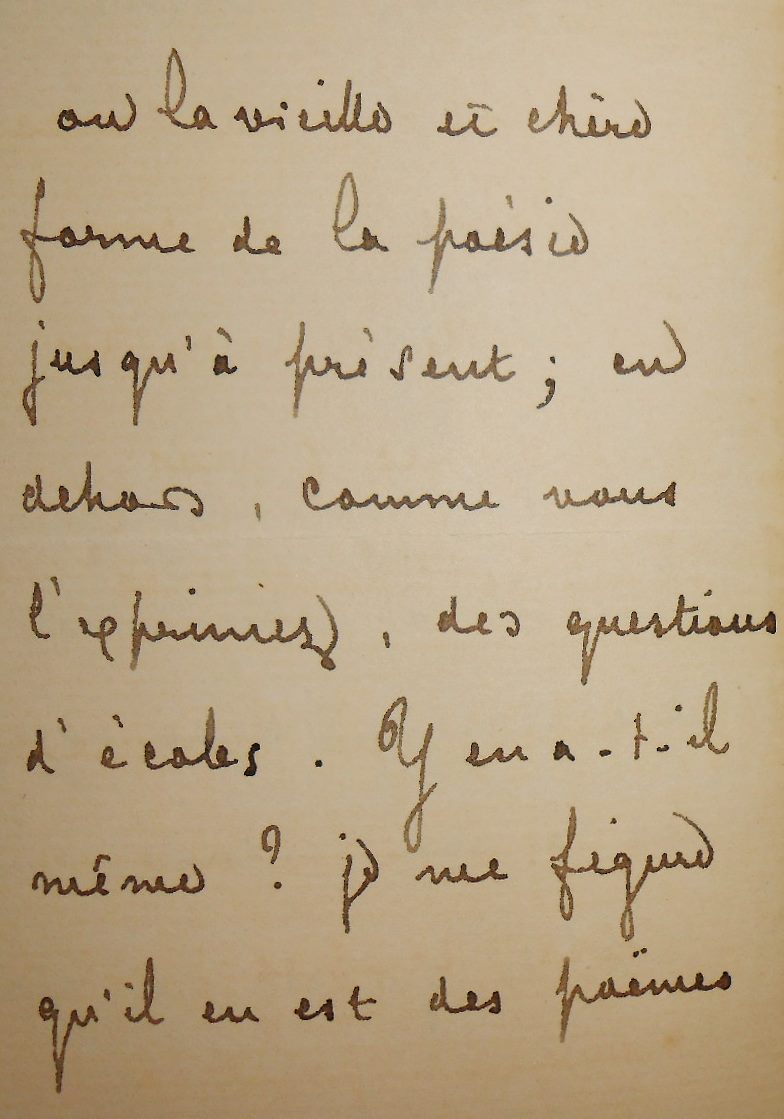 ou la vieille et chère
forme de la poésie
jusqu'à présent ; en
dehors, comme vous
l'exprimez, des questions
d'écoles. Y en a-t-il
même ? je me figure
qu'il en est des poëmes